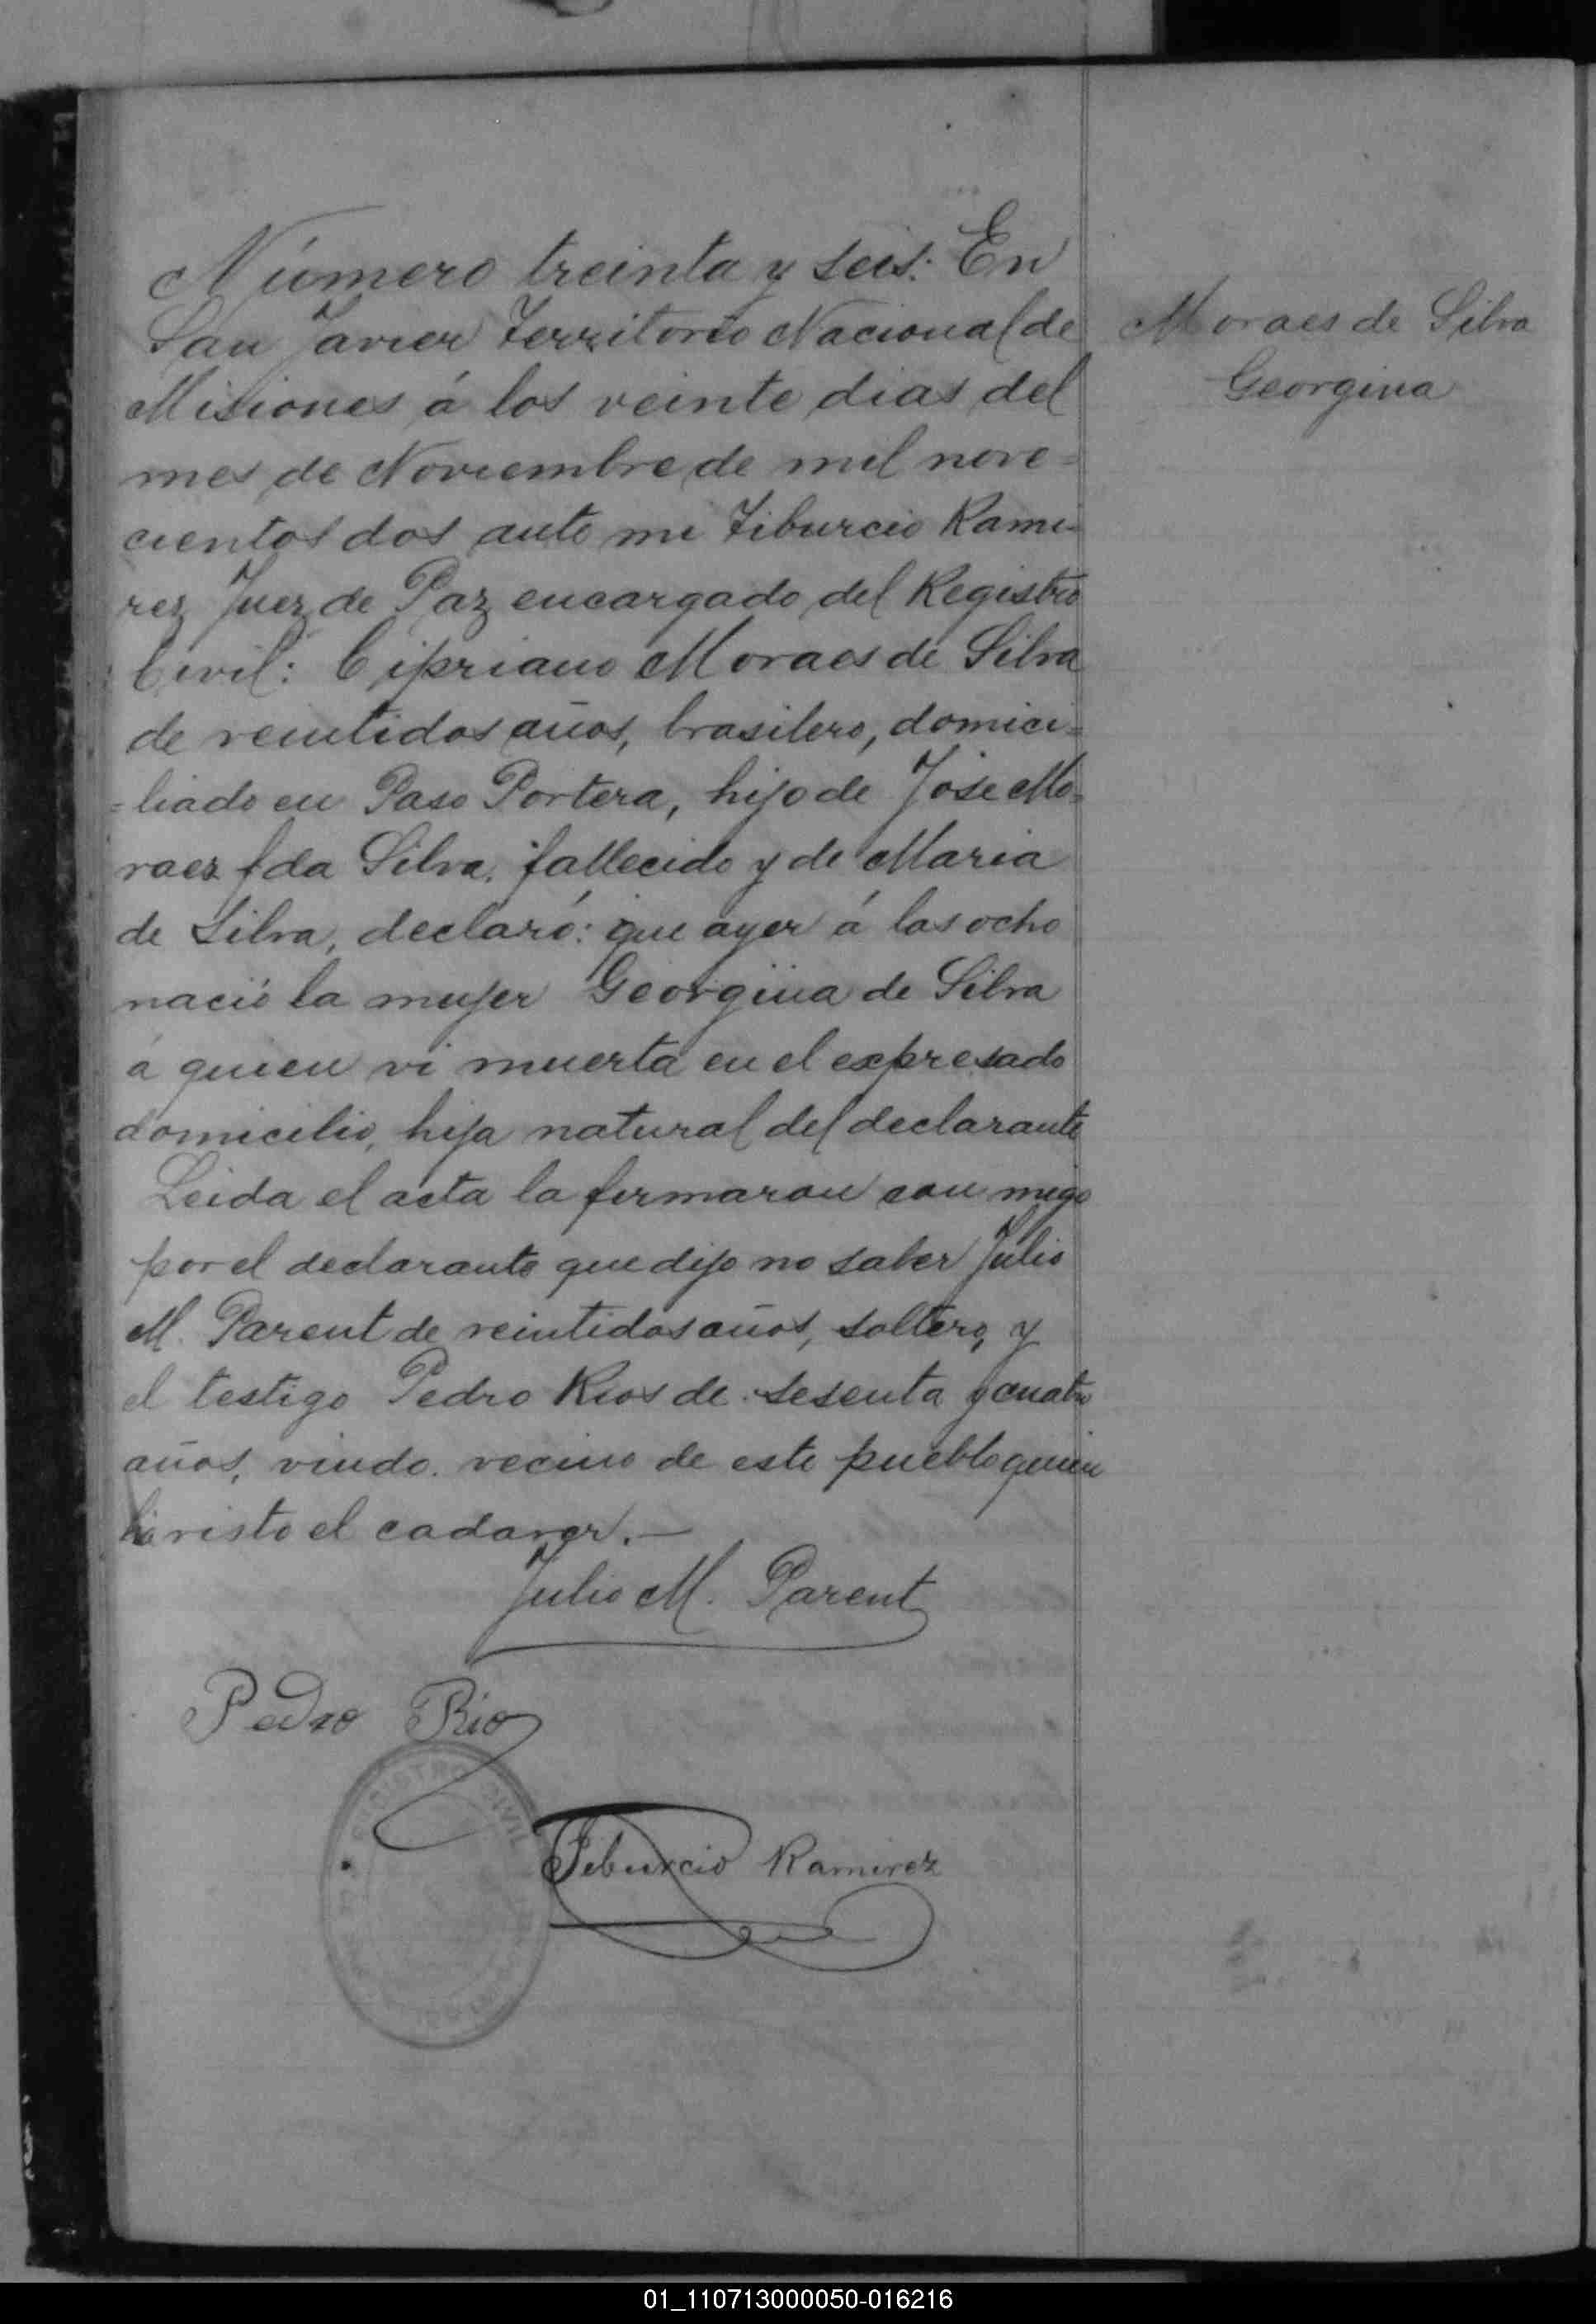 Número treinta y seis: En
San Javier Territorio Nacional de
Misiones á los veinte dias del
mes de Noviembre de mil nove=
cientos dos ante mi Tiburcio Rami-
rez Juez de Paz encargado del Registro
Civil: Cipriano Moraes de Silva
de veintidos años, brasilero, domici=
=liado en Paso Portera, hijo de Jose Mo=
raes da Silva, fallecido y de Maria
de Silva, declaró: que ayer á las ocho
nació la mujer Georgina de Silva
á quien vi muerta en el expresado
domicilio, hija natural del declarante
Leida el acta la firmaron con migo
por el declarante que dijo no saber Julio
M. Parent de veintidos años, soltero, y
el testigo Pedro Rios de sesenta y cuatro
años, viudo. vecino de este pueblo quien
ha visto el cadaver.—
Julio M. Parent
Pedro Rios
REGISTRO CIVIL
Tiburcio Ramirez
Moraes de Silva
Georgina
01_110713000050-016216